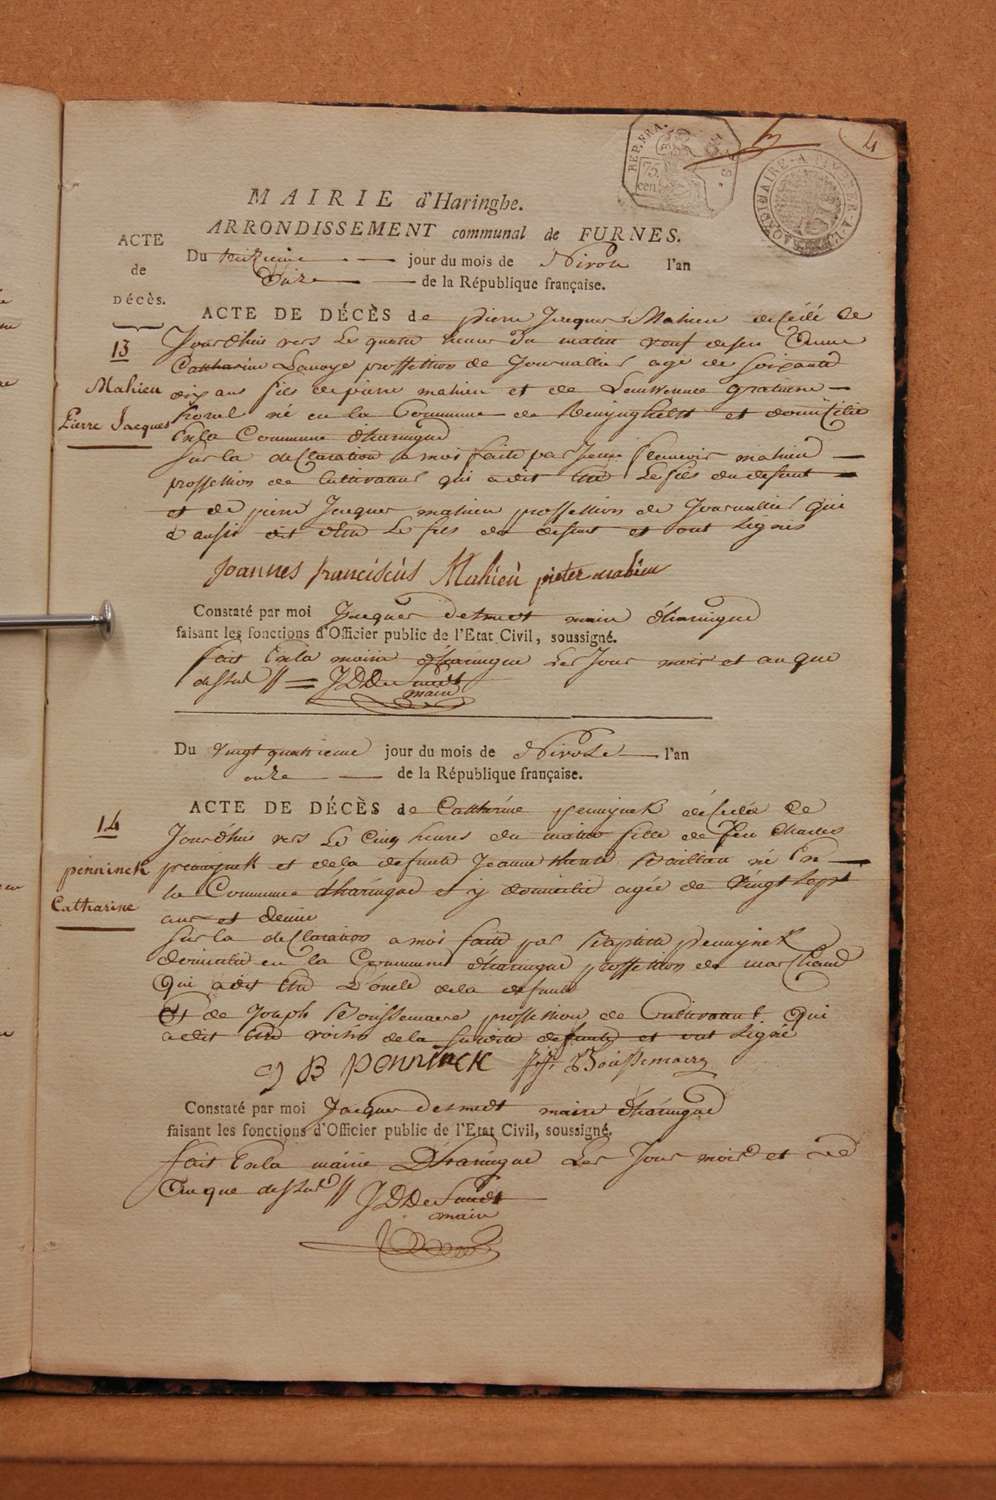 4
REP. FRA.
75 cen.
MAIRIE d'Haringhe.
ARRONDISSEMENT communal de FURNES.
ACTE
de
DÉCÈS.
Du jour du mois de Nivose l'an
Onze de la République française.
ACTE DE DÉCÈS de pierre Jacques Mahieu décédé le
13
Mahieu
Pierre Jacques
Jourdhuis vers le quatre heures du matin veuf de feu
Catharine profession de Journallier agé de soixante
dix ans fils de pierre mahieu et de
né en la Commune de et domicilié
en la Commune d'haringue
sur la declaration a moi faite par Jean mahieu
profession de Cultivateur qui a dit être le fils du defunt
et de pierre Jacques mahieu profession de Journallier qui
a aussi dit être le fils du defunt et ont signés
Joannes franciscus Mahieu pieter mahieu
Constaté par moi Jacques desmedt maire d'haringue
faisant les fonctions d'Officier public de l'Etat Civil, soussigné.
fait en la mairie d'haringue les Jour mois et an que
dessus
maire
Du vingt quatrieme jour du mois de Nivose l'an
onze de la République française.
ACTE DE DÉCÈS de Catharine pennynck décédée le
14
penninck
Catharine
Jourdhuis vers le cinq heures du matin fille de feu Charles
pennynck et de la defunte Jeanne né en
la Commune d'haringue et y domicilié agée de vingt sept
ans et demie
sur la declaration a moi faite par Baptiste pennynck
domicilié en la Commune d'haringue profession de marchand
qui a dit être l'oncle de la defunte
Et de Joseph Boussemaere profession de Cultivateur qui
a dit être voisin de la susdite defunte et ont signé
J B Penninck Boussemaere
Constaté par moi Jacques desmedt maire d'haringue
faisant les fonctions d'Officier public de l'Etat Civil, soussigné.
fait en la mairie d'haringue les Jour mois et
an que dessus
maire